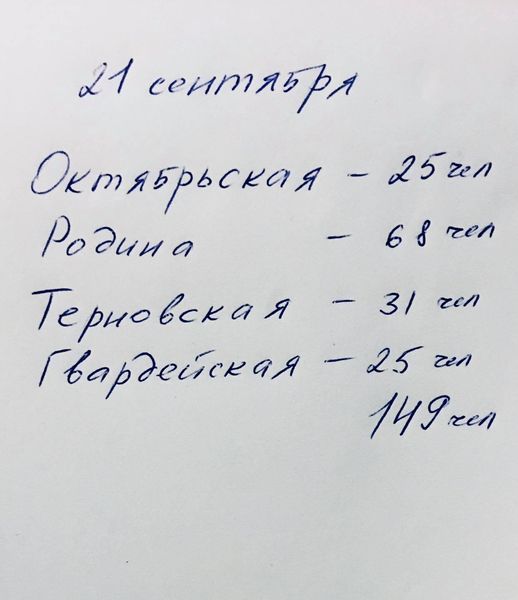 21 сентября
Октябрьская - 25 чел
Родина - 68 чел
Терновская - 31 чел
Гвардейская - 25 чел
149 чел